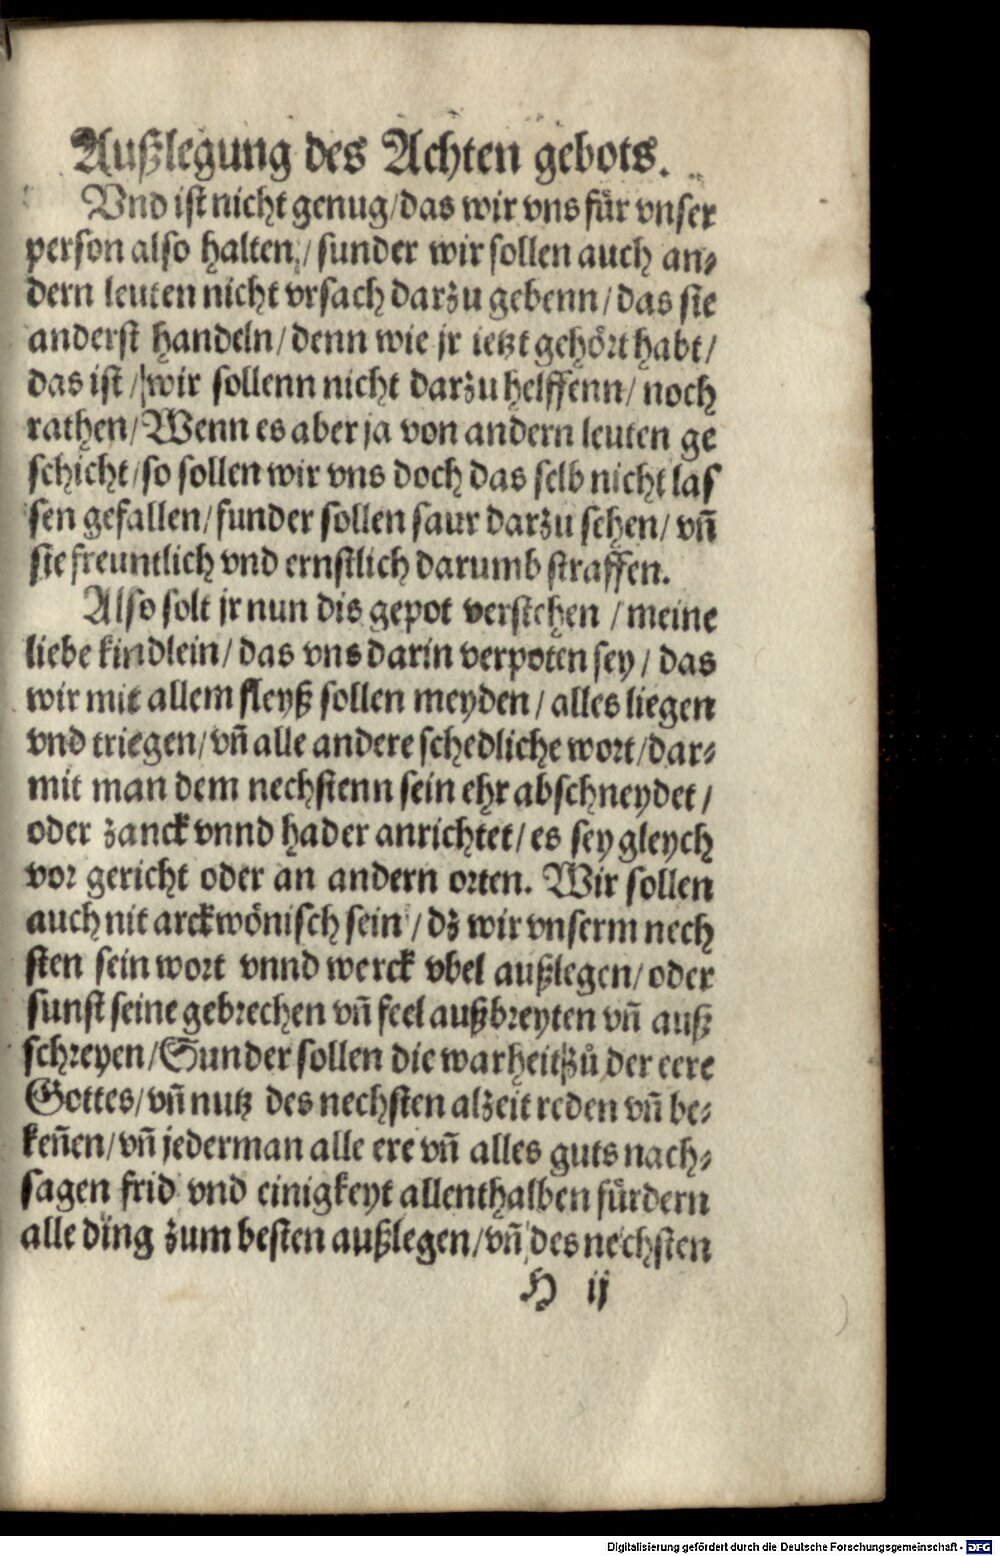 Außlegung des Achten gebots.
Vnd ist nicht genug/das wir vns für vnser
person also halten/sunder wir sollen auch an⸗
dern leuten nicht vrsach darzu gebenn/das sie
anderst handeln/denn wie jr ietzt gehört habt/
das ist/wir sollenn nicht darzu helffenn/noch
rathen/Wenn es aber ja von andern leuten ge
schicht/so sollen wir vns doch das selb nicht las
sen gefallen/sunder sollen saur darzu sehen/vñ
sie freuntlich vnd ernstlich darumb straffen.
Also solt jr nun dis gepot verstehen/meine
liebe kindlein/das vns darin verpoten sey/das
wir mit allem fleyß sollen meyden/alles liegen
vnd triegen/vñ alle andere schedliche wort/dar⸗
mit man dem nechstenn sein ehr abschneydet/
oder zanck vnnd hader anrichtet/es sey gleych
vor gericht oder an andern orten. Wir sollen
auch nit arckwönisch sein/dz wir vnserm nech
sten sein wort vnnd werck vbel außlegen/oder
sunst seine gebrechen vñ feel außbreyten vñ auß
schreyen/Sunder sollen die warheit zů der eere
Gottes/vñ nutz des nechsten alzeit reden vñ be⸗
keñen/vñ jederman alle ere vñ alles guts nach⸗
sagen frid vnd einigkeyt allenthalben fürdern
alle ding zum besten außlegen/vñ des nechsten
H ij
Digitalisierung gefördert durch die Deutsche Forschungsgemeinschaft - DFG